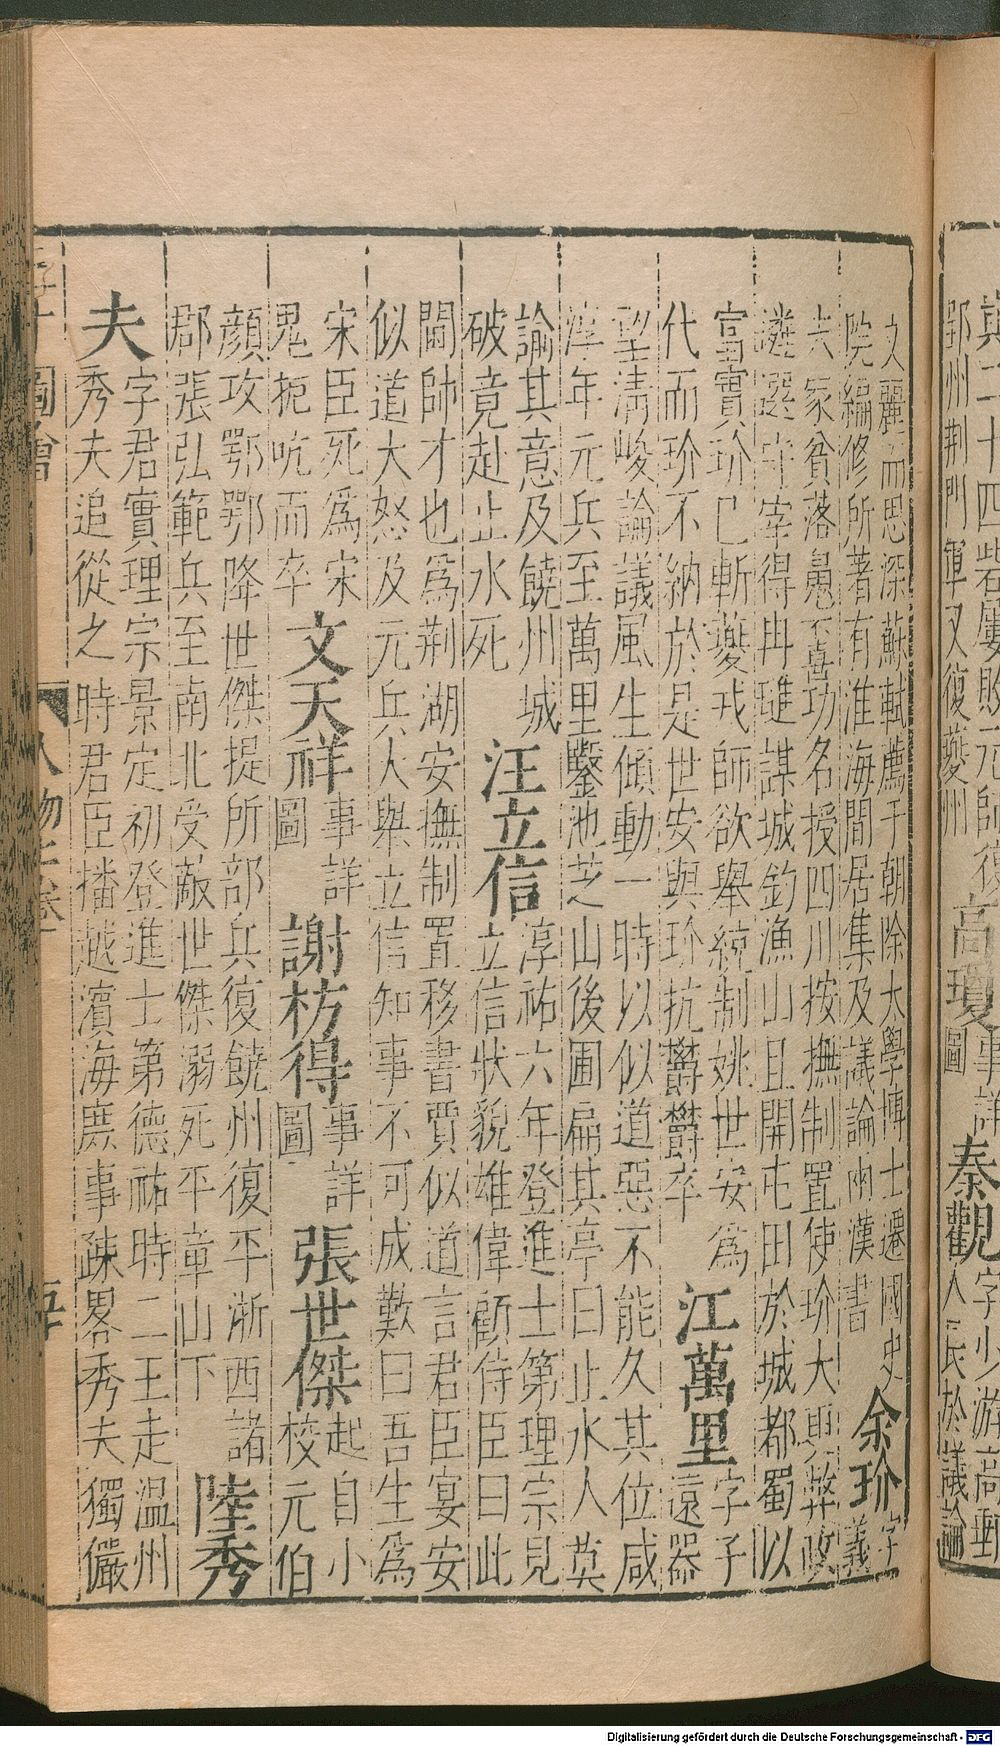 二十四砦屢敗元師復
鄂州荆門軍又復夔州
高瓊
事詳
圖
秦觀
字少游高郵
人長於議論
文麗而思深蘇軾薦于朝除太學博士遷國史
院編修所著有淮海閒居集及議論兩漢書
余玠
字
義
夫家貧落魄不喜功名授四川按撫制置使玠大更弊政
遴選守宰得冉璡謀城釣漁山且開屯田於城都蜀以
富實玠已斬夔戎師欲舉統制姚世安爲
代而玠不納於是世安與玠抗欝欝卒
江萬里
字子
遠器
望清峻論議風生傾動一時以似道惡不能久其位咸
淳年元兵至萬里鑿池芝山後圃扁其亭曰止水人莫
諭其意及饒州城
破竟赴止水死
汪立信
淳祐六年登進士第理宗見
立信狀貌雄偉顧侍臣曰此
閫帥才也爲荆湖安撫制置移書賈似道言君臣宴安
似道大怒及元兵人舉立信知事不可成歎曰吾生爲
宋臣死爲宋
鬼扼吭而卒
文天祥
事詳
圖
謝枋得
事詳
圖
張世傑
起自小
校元伯
顔攻鄂鄂降世傑提所部兵復饒州復平浙西諸
郡張弘範兵至南北受敵世傑溺死平章山下
陸秀
夫
字君實理宗景定初登進士第德祐時二王走温州
秀夫追從之時君臣播越濵海庶事疎畧秀夫獨儼
圖會
人物
Digitalisierung gefördert durch die Deutsche Forschungsgemeinschaft - DFG